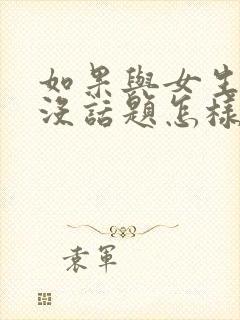 如果與女生
沒話題怎樣
袁軍